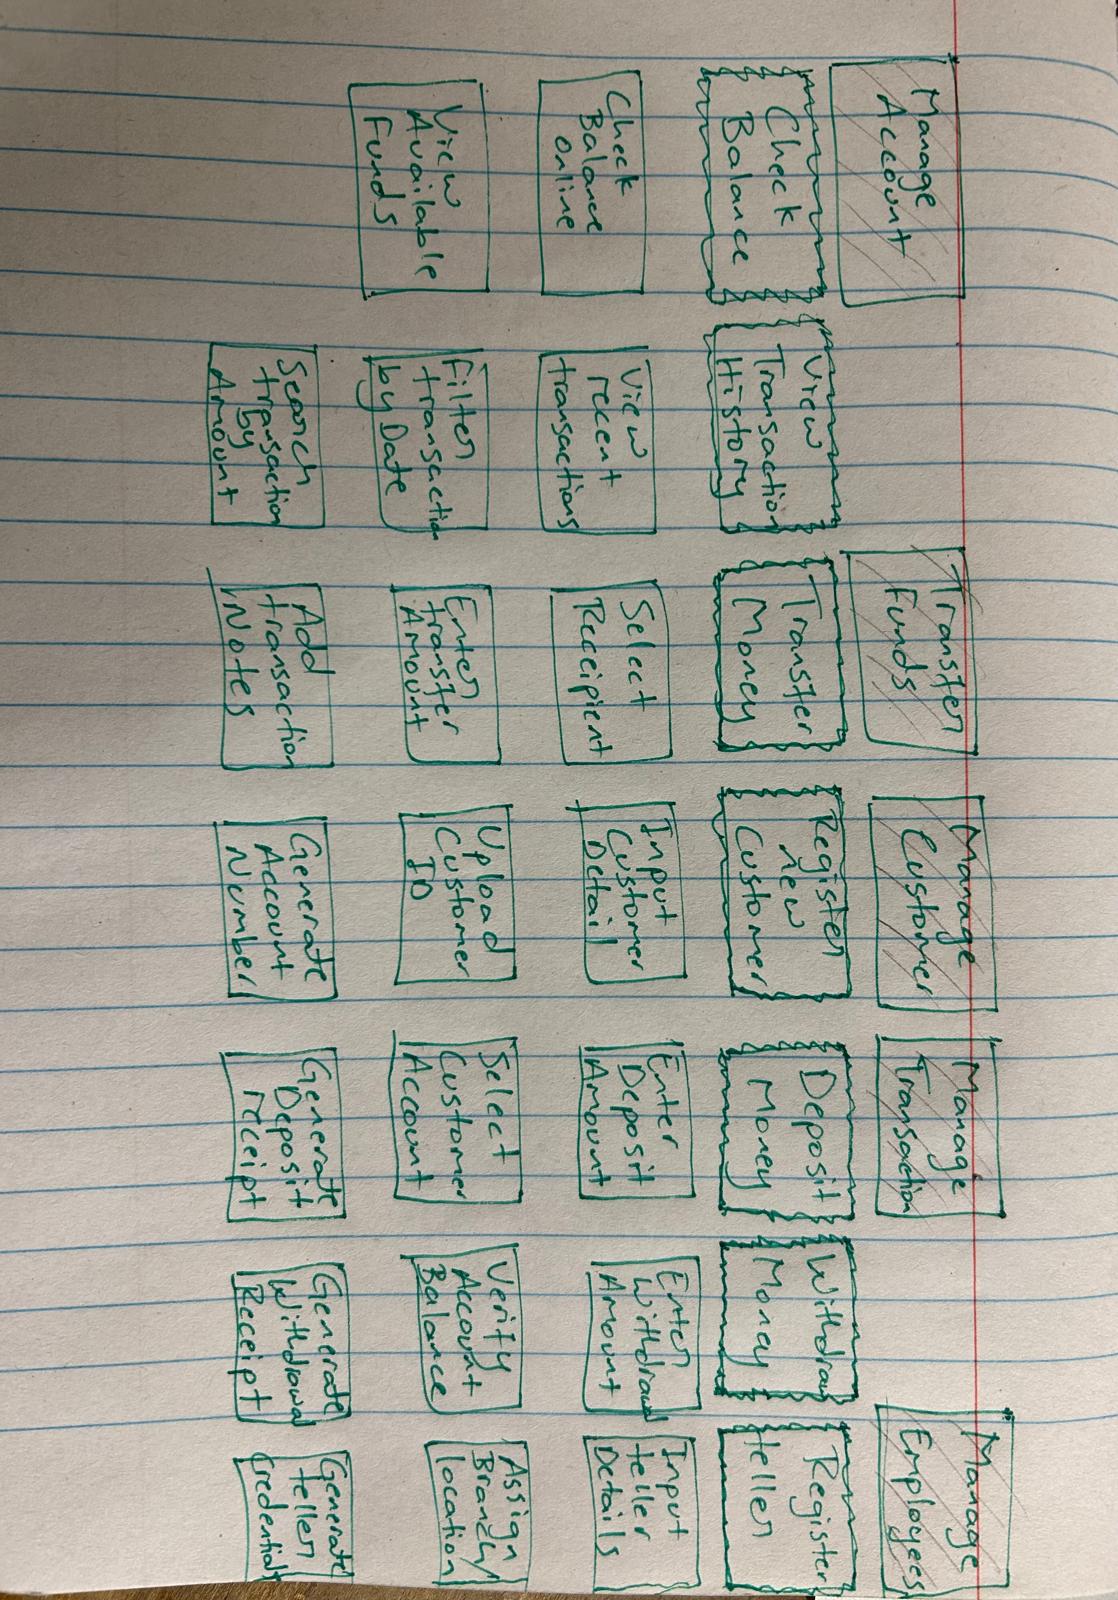 Manage
Account
Transfer
Funds
Manage
Customer
Manage
Transaction
Manage
Employees
Check
Balance
View
Transaction
History
Transfer
Money
Register
new
Customer
Deposit
Money
Withdraw
Money
Register
teller
Check
Balance
Online
View
recent
transactions
Select
Receipient
Input
Customer
Detail
Enter
Deposit
Amount
Enter
Withdrawal
Amount
Input
teller
Details
View
Available
Funds
Filter
transaction
by Date
Enter
transfer
Amount
Upload
Customer
ID
Select
Customer
Account
Verify
Account
Balance
Assign
Branch/
location
Search
transaction
by
Amount
Add
transaction
Notes
Generate
Account
Number
Generate
Deposit
receipt
Generate
Withdrawal
Receipt
Generate
teller
Credentials